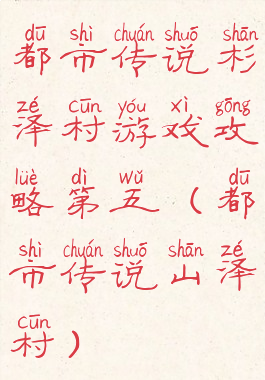 dū shì chuán shuō shān
都市传说杉
zé cūn yóu xì gōng
泽村游戏攻
lüè dì wǔ dū
略第五（都
shì chuán shuō shān zé
市传说山泽
cūn
村）